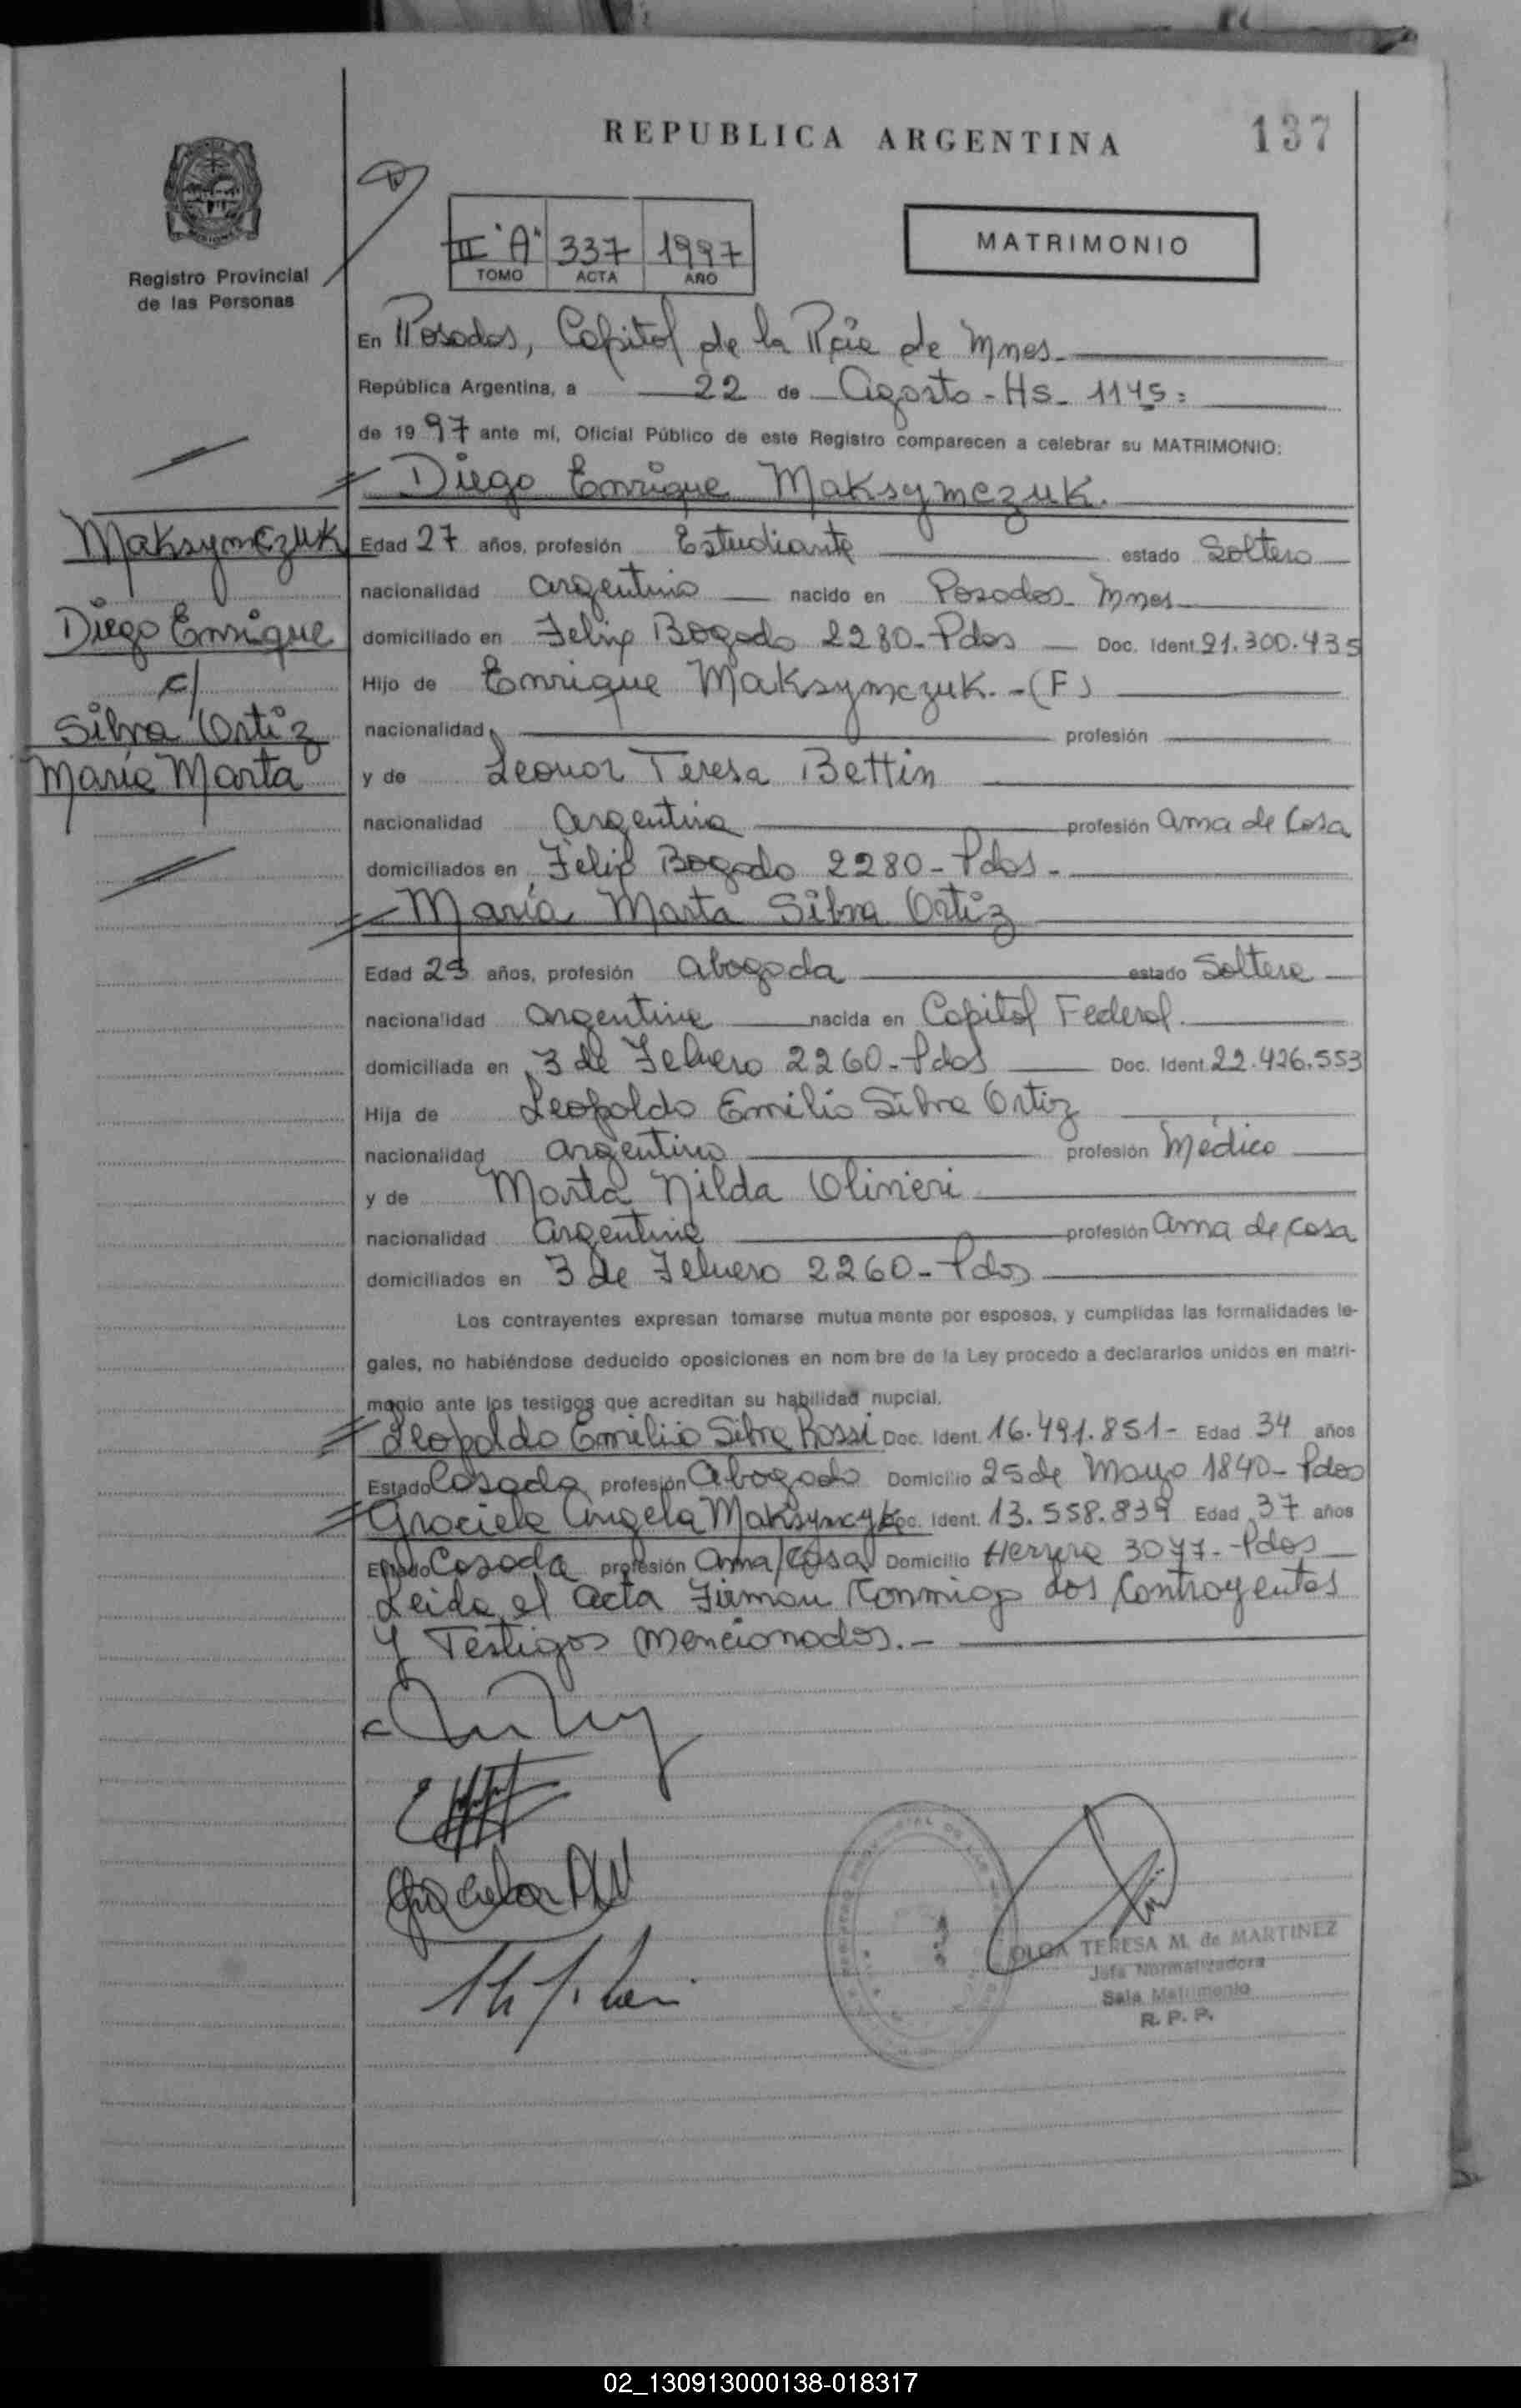 REPUBLICA ARGENTINA
137
Registro Provincial
de las Personas
II "A" 337 1997
TOMO ACTA AÑO
MATRIMONIO
En Posadas, Capital de la Pcia de Mnes.
República Argentina, a 22 de Agosto - Hs. 1145:
de 1997 ante mí, Oficial Público de este Registro comparecen a celebrar su MATRIMONIO:
Diego Enrique Maksymczuk.
Maksymczuk
Diego Enrique
c/
Silva Ortiz
María Marta
Edad 27 años, profesión Estudiante estado Soltero
nacionalidad argentino nacido en Posadas - Mnes
domiciliado en Felix Bogado 2280 - Pdas Doc. Ident. 21.300.435
Hijo de Enrique Maksymczuk. - (F)
nacionalidad profesión
y de Leonor Teresa Bettin
nacionalidad Argentina profesión Ama de Casa
domiciliados en Felix Bogado 2280 - Pdas -
María Marta Silva Ortiz
Edad 25 años, profesión Abogada estado Soltera
nacionalidad Argentina nacida en Capital Federal.
domiciliada en 3 de Febrero 2260 - Pdas Doc. Ident. 22.426.553
Hija de Leopoldo Emilio Silva Ortiz
nacionalidad argentino profesión Médico
y de Marta Nilda Olivieri
nacionalidad Argentina profesión Ama de casa
domiciliados en 3 de Febrero 2260 - Pdas
Los contrayentes expresan tomarse mutua mente por esposos, y cumplidas las formalidades le-
gales, no habiéndose deducido oposiciones en nom bre de la Ley procedo a declararlos unidos en matri-
monio ante los testigos que acreditan su habilidad nupcial.
Leopoldo Emilio Silva Rossi Doc. Ident. 16.491.851 - Edad 34 años
Estado Casado profesión Abogado Domicilio 25 de Mayo 1840 - Pdas
Graciela Angela Maksymcyk Doc. Ident. 13.558.839 Edad 37 años
Estado Casada profesión Ama/Casa Domicilio Herrera 3077. - Pdas
Leida el acta Firman Conmigo los Contrayentes
y Testigos mencionados. -
OLGA TERESA M. de MARTINEZ
Jefa Normalizadora
Sala Matrimonio
R. P. P.
02_130913000138-018317